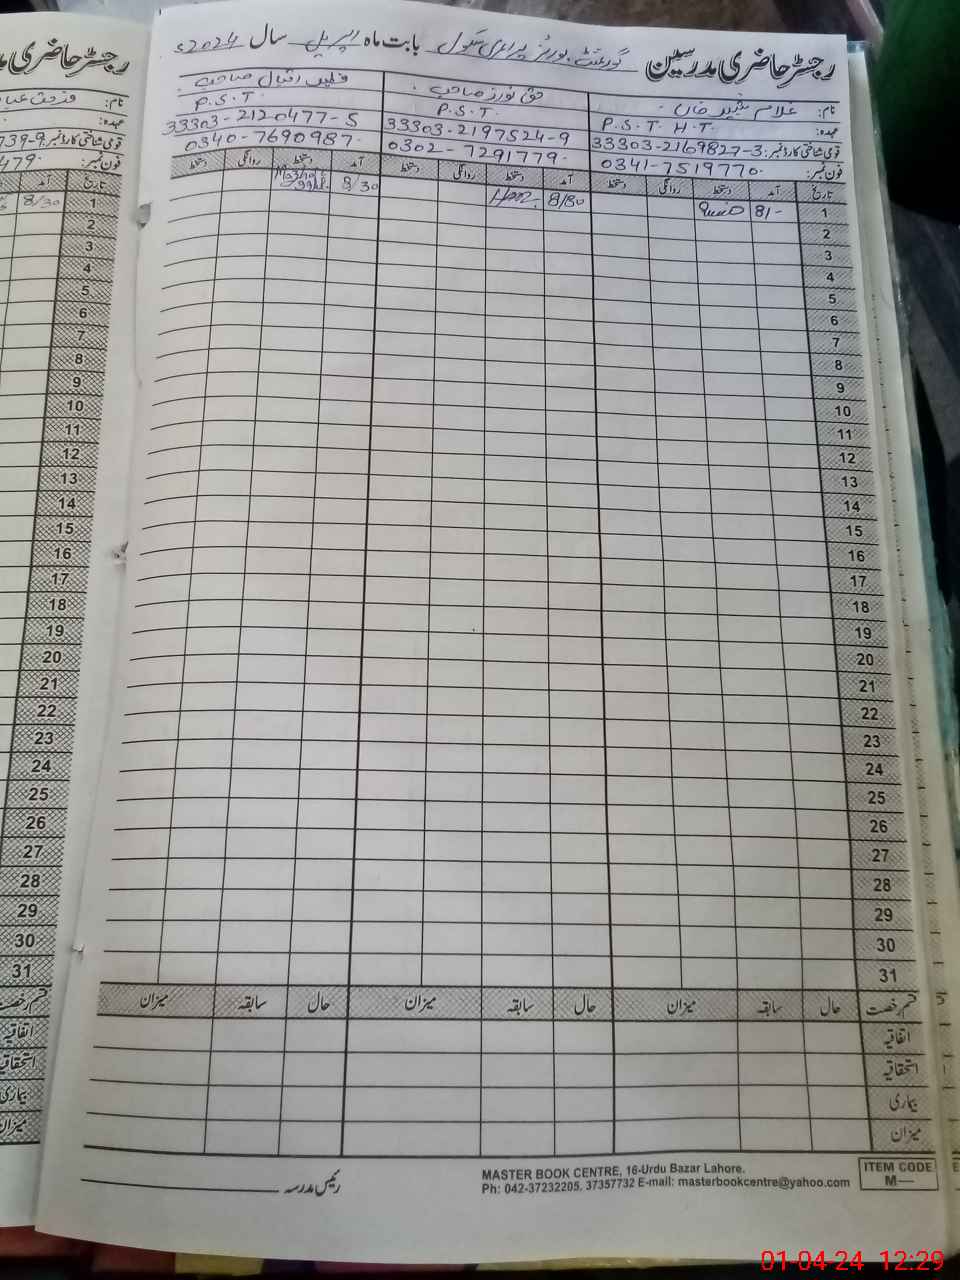 رجسٹر حاضری مدرسین گورنمنٹ بوائز پرائمری سکول بابت ماہ اپریل سال 2024ء
نام: غلام شبیر خان
عہدہ: P.S.T H.T.
قومی شناختی کارڈ نمبر: 33303-2169827-3
فون نمبر: 0341-7519770
حق نواز صاحب
P.S.T.
33303-2197524-9
0302-7291779
اقبال صاحب
P.S.T.
33303-2120477-5
0340-7690987
تاریخ آمد دستخط روانگی دستخط آمد دستخط روانگی دستخط آمد دستخط روانگی دستخط
1 8/- 8/30 8/30
2
3
4
5
6
7
8
9
10
11
12
13
14
15
16
17
18
19
20
21
22
23
24
25
26
27
28
29
30
31
قسم رخصت حال سابقہ میزان حال سابقہ میزان حال سابقہ میزان
اتفاقیہ
استحقاقیہ
بیماری
میزان
رئیس مدرسہ
MASTER BOOK CENTRE, 16-Urdu Bazar Lahore.
Ph: 042-37232205, 37357732 E-mail: masterbookcentre@yahoo.com
ITEM CODE
M—
رجسٹر حاضری
نام:
عہدہ:
قومی شناختی کارڈ نمبر: 739-9
فون نمبر: 479
تاریخ آمد
1 8/30
2
3
4
5
6
7
8
9
10
11
12
13
14
15
16
17
18
19
20
21
22
23
24
25
26
27
28
29
30
31
قسم رخصت
اتفاقیہ
استحقاقیہ
بیماری
میزان
01-04-24 12:29